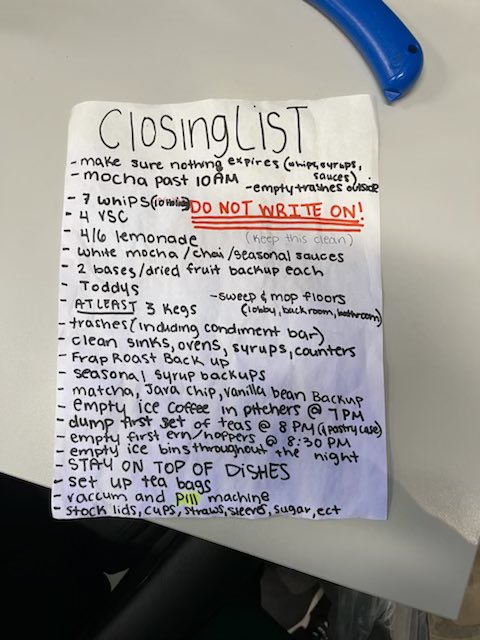 Closing List
- make sure nothing expires (whips, syrups, sauces)
- mocha past 10AM
- empty trashes outside
- 7 whips
DO NOT WRITE ON!
- 4 VSC
(keep this clean)
- 4/6 lemonade
- white mocha/chai/seasonal sauces
- 2 bases/dried fruit backup each
- Toddys
- sweep & mop floors
(lobby, backroom, bathroom)
- AT LEAST 3 kegs
- trashes (including condiment bar)
- clean sinks, ovens, syrups, counters
- Frap Roast Back up
- seasonal syrup backups
- matcha, Java chip, vanilla bean Backup
- empty ice coffee in pitchers @ 7PM
- dump first set of teas @ 8 PM (& pastry case)
- empty first ern/hoppers @ 8:30 PM
- empty ice bins throughout the night
- STAY ON TOP OF DISHES
- set up tea bags
- vaccum and pill machine
- stock lids, cups, straws, sleeves, sugar, ect